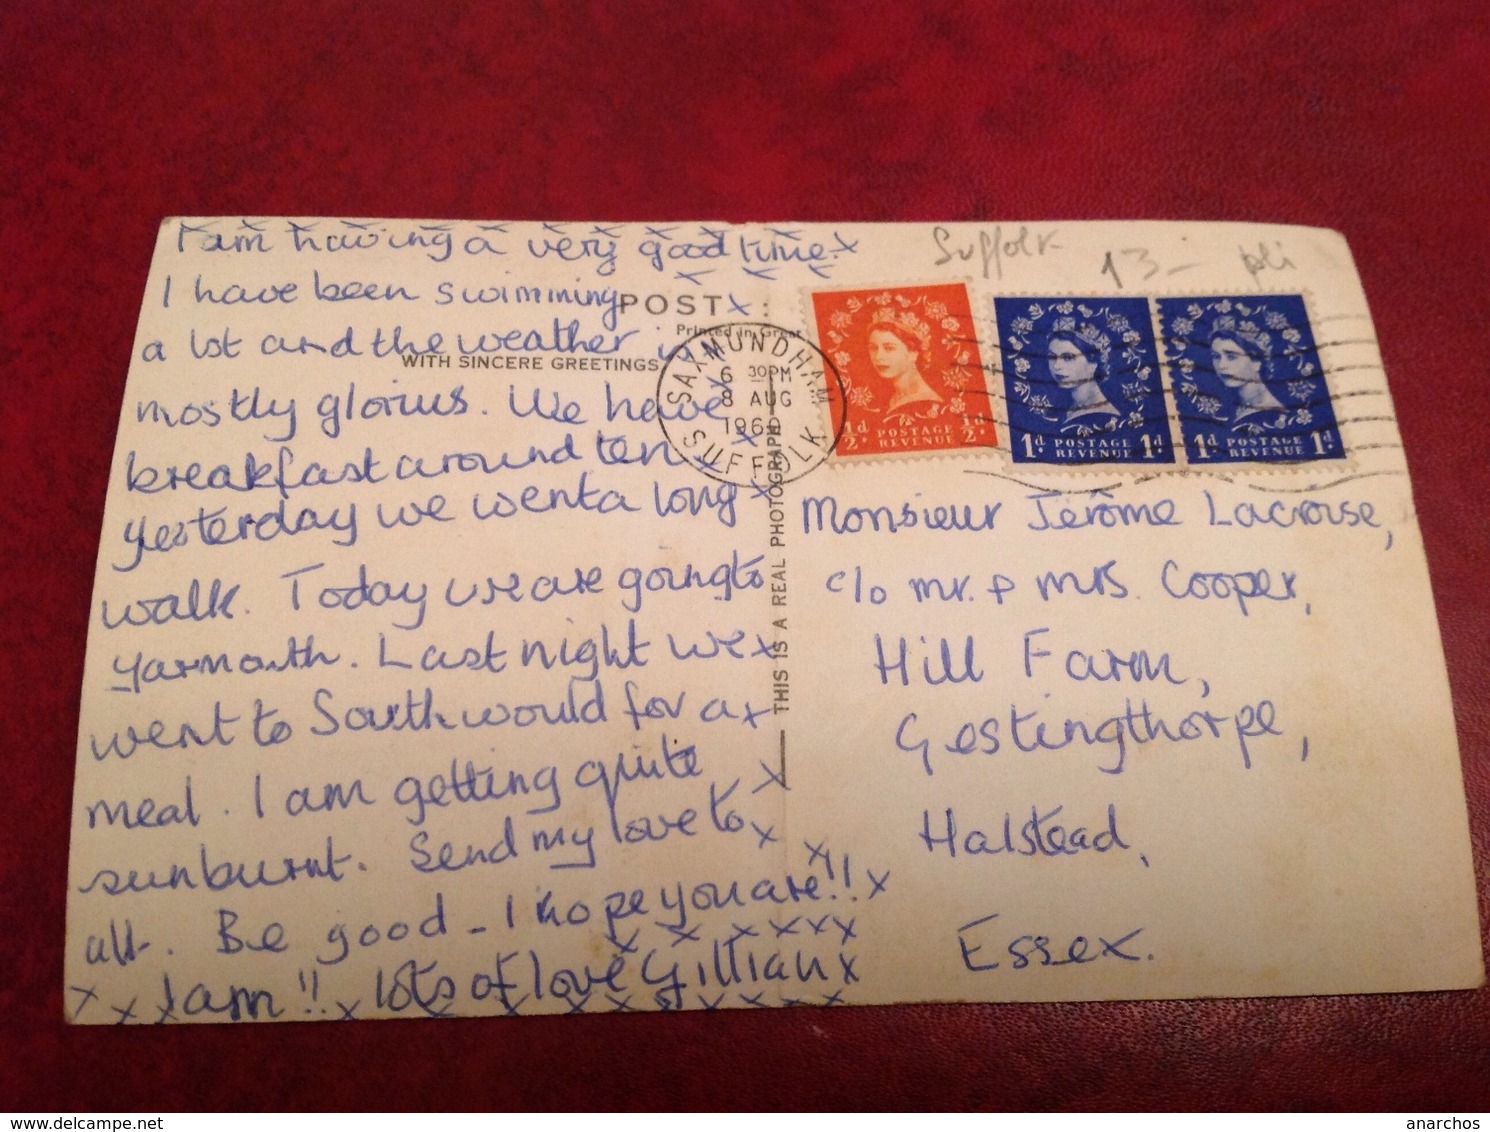 I am having a very good time.
I have been swimming
a lot and the weather is
mostly glorius. We have
breakfast around ten
yesterday we went a long
walk. Today we are going to
Yarmouth. Last night we
went to Southwould for a
meal. I am getting quite
sunburnt. Send my love to
all. Be good - I hope you are!!
I am!! lots of love Gillian
POST
Printed in Great
WITH SINCERE GREETINGS
THIS IS A REAL PHOTOGRAPH
SAXMUNDHAM
6 30PM
8 AUG
SUFFOLK
Suffolk
13 -
1/2d 1/2d
POSTAGE
REVENUE
1d 1d
POSTAGE
REVENUE
1d 1d
POSTAGE
REVENUE
Monsieur Jérôme Lacroise,
c/o Mr. & Mrs. Cooper,
Hill Farm,
Gestingthorpe,
Halstead,
Essex.
delcampe.net
anarchos